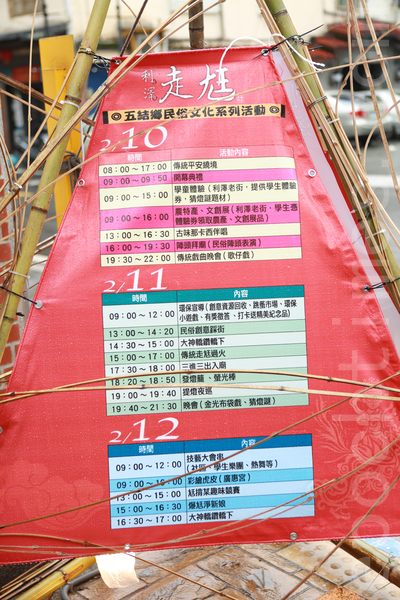 利澤 走尪
五結鄉民俗文化系列活動
2/10
時間 活動內容
08：00～17：00 傳統平安繞境
09：00～09：50 開幕典禮
09：00～15：00 學童體驗（利澤老街，提供學生體驗
券，猜燈謎題材）
09：00～16：00 農特產、文創展（利澤老街，學生憑
體驗券領取農產、文創展品）
13：00～16：30 古味那卡西伴唱
16：00～19：30 陣頭拜廟（民俗陣頭表演）
19：30～22：00 傳統戲曲晚會（歌仔戲）
2/11
時間 內容
09：00～12：00 環保宣導（創意資源回收、跳蚤市場、環保
小遊戲、有獎徵答、打卡送精美紀念品）
13：00～14：20 民俗創意踩街
14：30～15：00 大神轎鑽轎下
15：00～17：00 傳統走尪過火
17：30～18：00 三進三出入廟
18：20～18：50 發燈籠、螢光棒
19：00～19：40 提燈夜巡
19：40～21：30 晚會（金光布袋戲、猜燈謎）
2/12
時間 內容
09：00～12：00 技藝大會串
（社區、學生樂團、熱舞等）
09：00～16：00 彩繪虎皮（廣惠宮）
13：00～15：00 尪揹某趣味競賽
15：00～16：30 爆尪淨新娘
16：30～17：00 大神轎鑽轎下